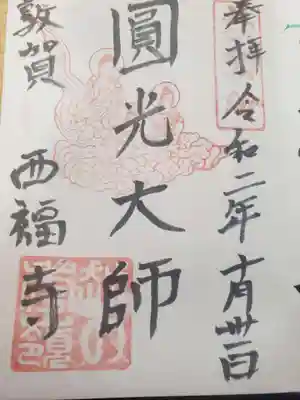 奉拝 令和二年十月卅日
圓光大師
敦賀 西福寺